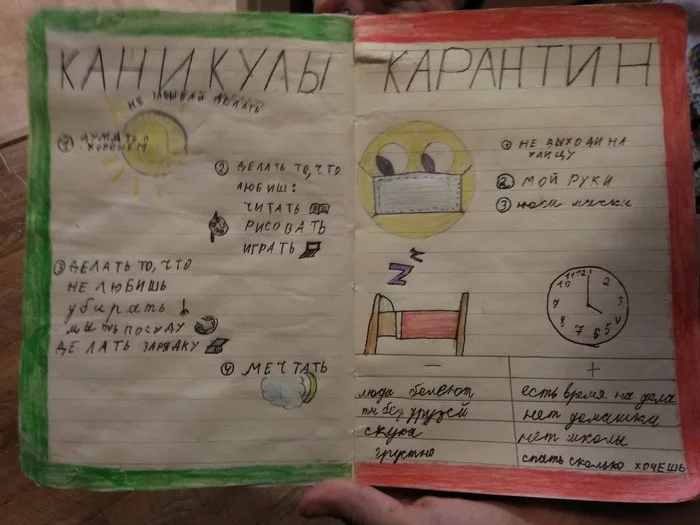 КАНИКУЛЫ
НЕ ЗАБЫВАЙ ДЕЛАТЬ
1 ДУМАТЬ О
ХОРОШЕМ
2 ДЕЛАТЬ ТО, ЧТО
ЛЮБИШ:
ЧИТАТЬ
РИСОВАТЬ
ИГРАТЬ
3 ДЕЛАТЬ ТО, ЧТО
НЕ ЛЮБИШЬ
убирать
мыть посуду
ДЕЛАТЬ ЗАРЯДКУ
4 МЕЧТАТЬ
КАРАНТИН
1 НЕ ВЫХОДИ НА
УЛИЦУ
2 МОЙ РУКИ
3 носи маски
Z Z
11 12 1
10 2
3
8 4
7 6 5
− +
люда болеют
ты без друзей
скука
грустно
есть время на дела
нет домашки
нет школы
спать сколько хочешь